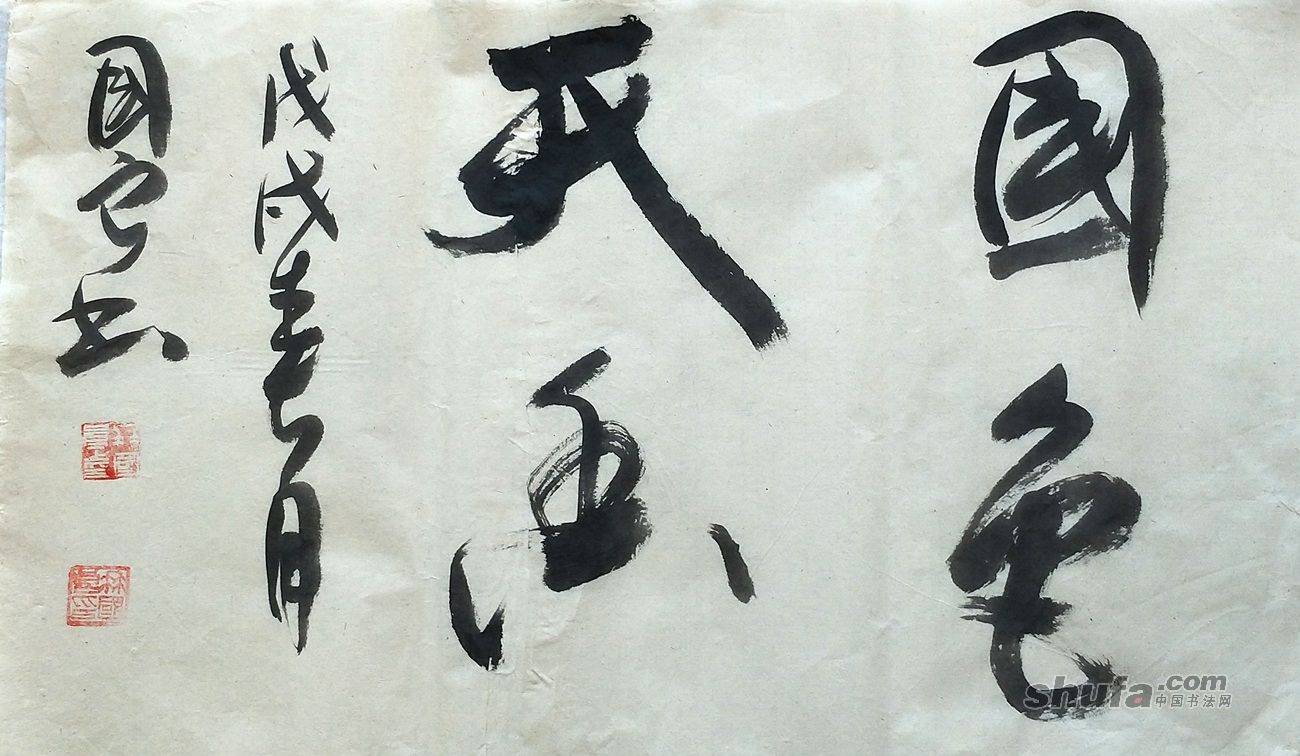 國色
天香
戊戌春月
國安书
shufa.com
中国书法网